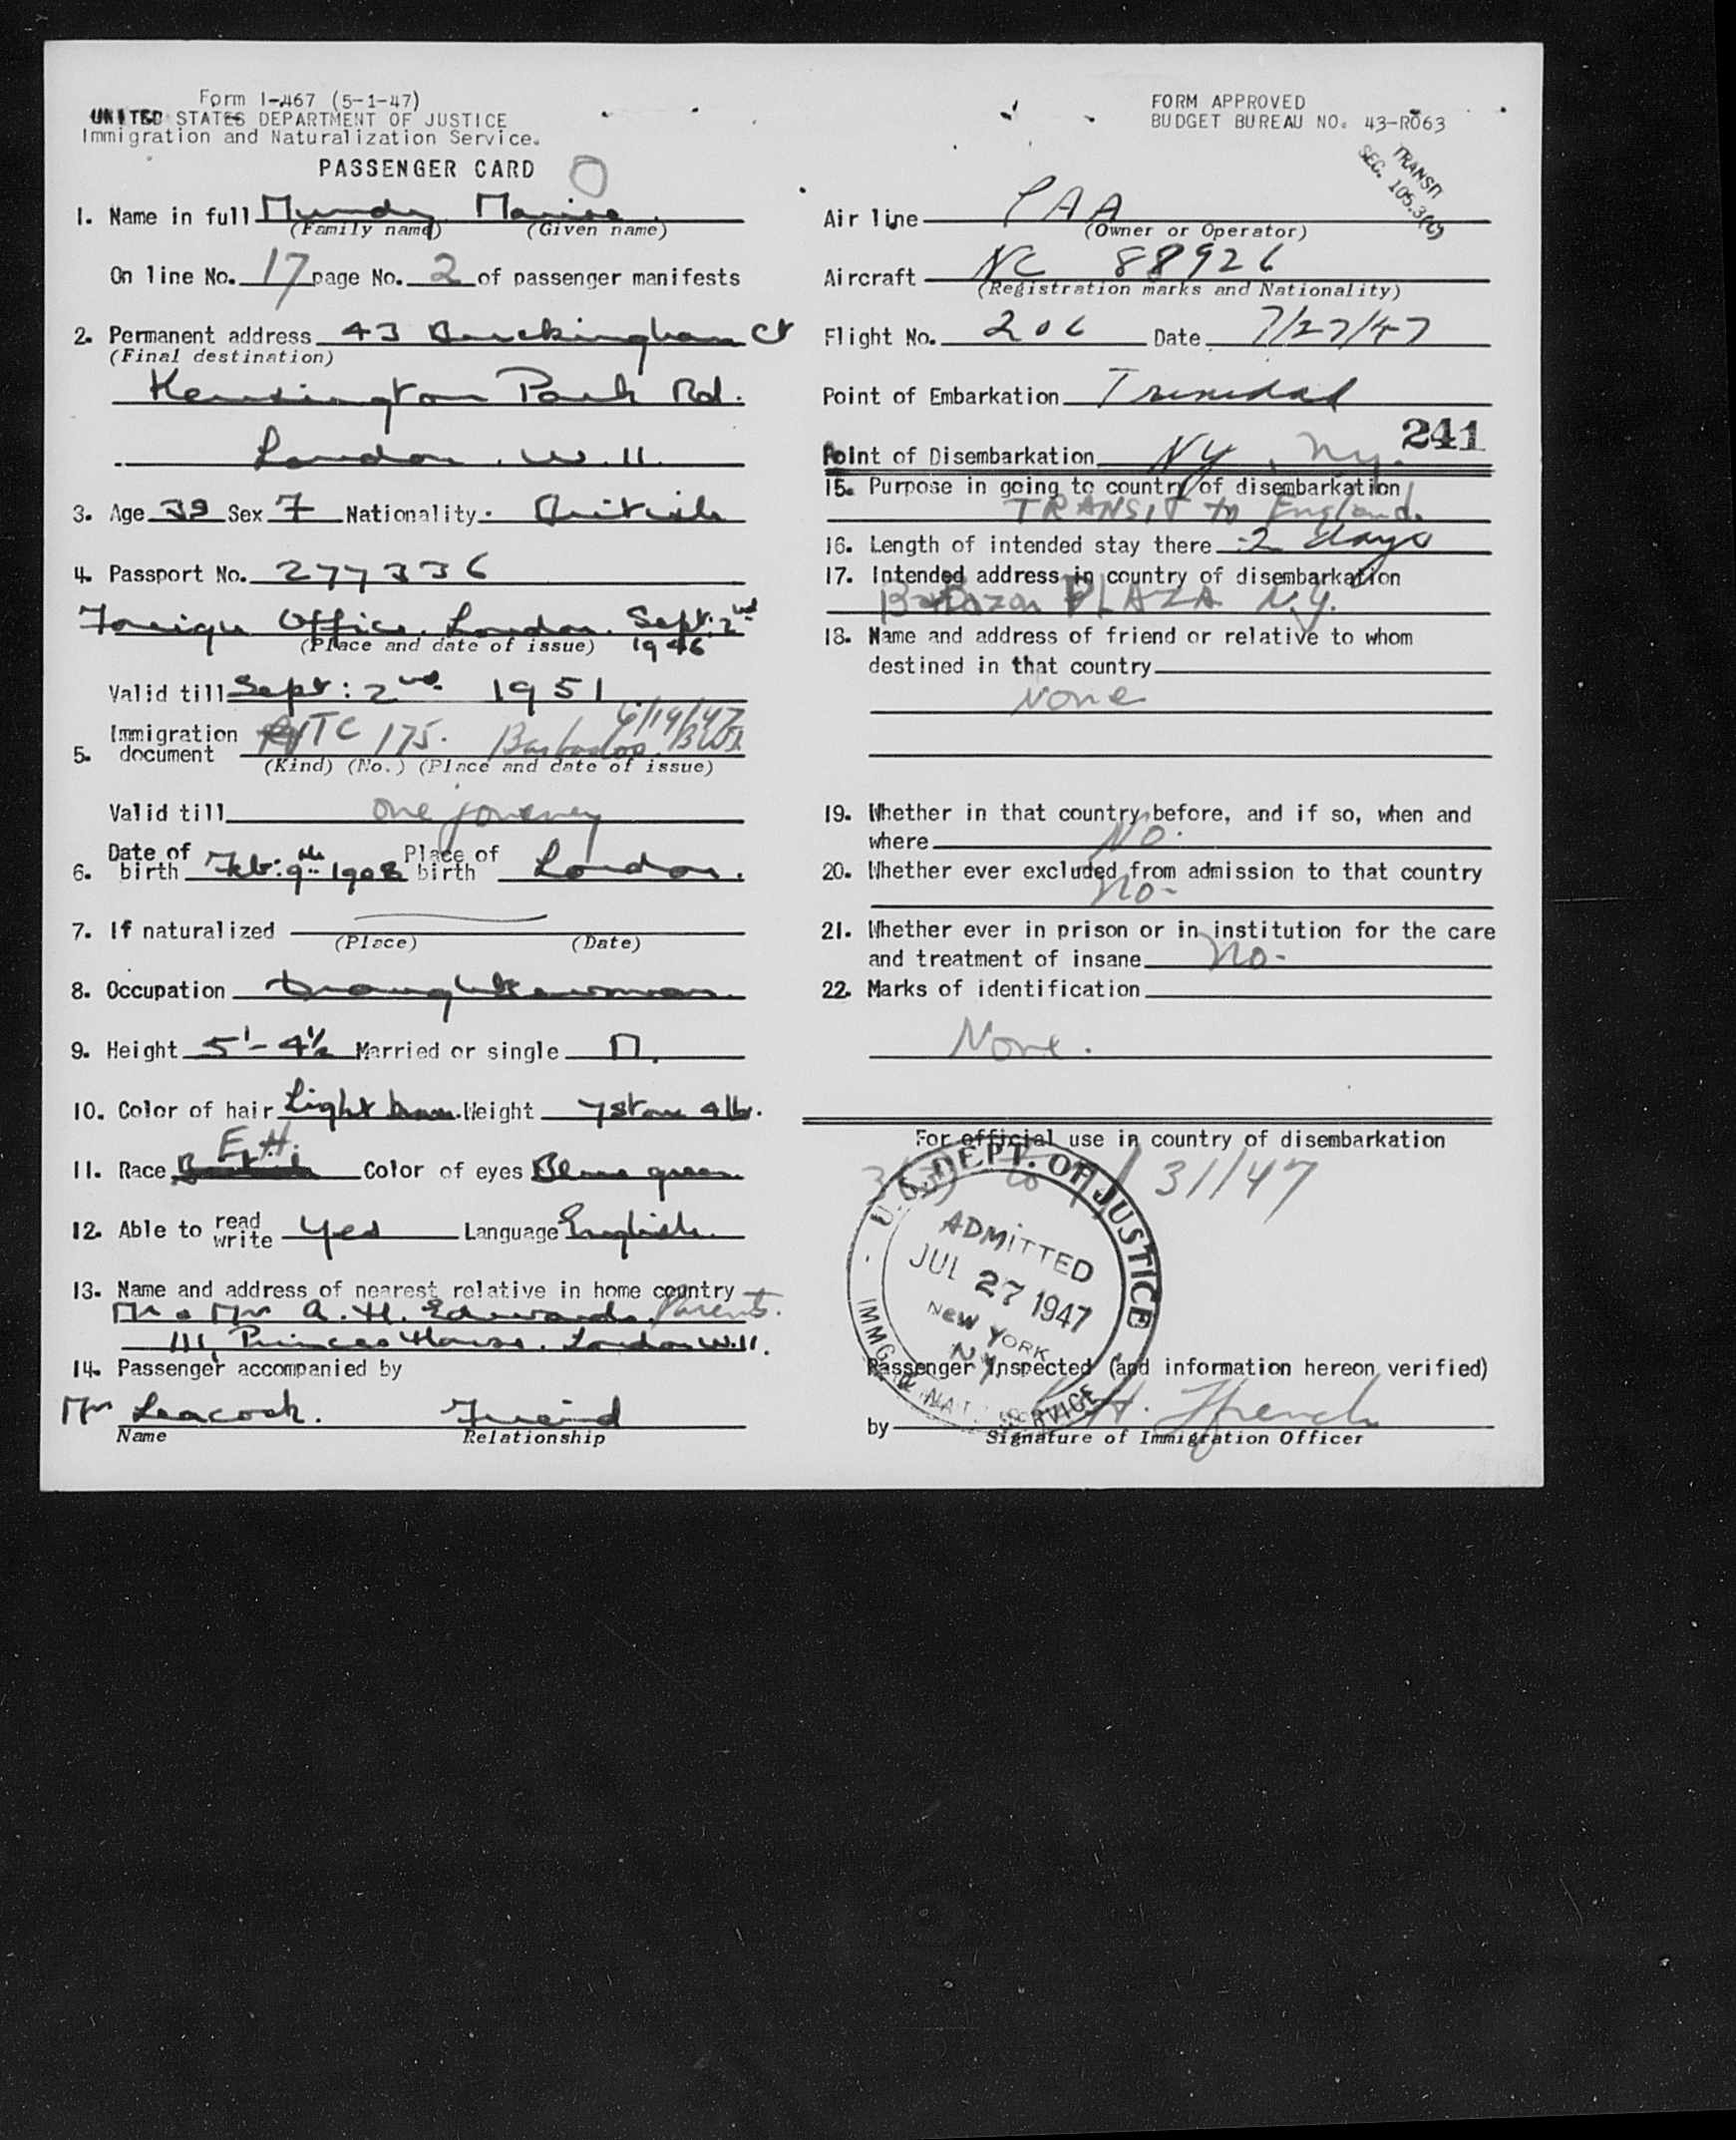 Form I-467 (5-1-47)
UNITED STATES DEPARTMENT OF JUSTICE
Immigration and Naturalization Service.
PASSENGER CARD
FORM APPROVED
BUDGET BUREAU NO. 43-R063
TRANSIT
SEC. 105.3(c)
1. Name in full Mundy Marise.
(Family name) (Given name)
On line No. 17 page No. 2 of passenger manifests
2. Permanent address 43 Buckingham Ct
(Final destination)
Kensington Park Rd.
London. W.11.
3. Age 39 Sex F Nationality. British
4. Passport No. 277336
Foreign Office. London. Sept: 2nd
(Place and date of issue) 1946
Valid till Sept: 2nd 1951
6/19/47
5. Immigration document TC 175. Barbados. BWI.
(Kind) (No.) (Place and date of issue)
Valid till one journey
6. Date of birth Feb: 9th 1908 Place of birth London.
7. If naturalized
(Place) (Date)
8. Occupation Draughtswoman.
9. Height 5'-4½ Married or single M.
10. Color of hair Light brown. Weight 7 stone 4 lb.
E.H.
11. Race British Color of eyes Blue green.
12. Able to read write Yes Language English.
13. Name and address of nearest relative in home country
Mr & Mrs A. H. Edwards. Parents.
111, Princes House. London W.11.
14. Passenger accompanied by
Mrs Leacock. Friend
Name Relationship
Air line PAA
(Owner or Operator)
Aircraft NC 88926
(Registration marks and Nationality)
Flight No. 206 Date 7/27/47
Point of Embarkation Trinidad
241
Point of Disembarkation NY, NY.
15. Purpose in going to country of disembarkation
TRANSIT to England.
16. Length of intended stay there 2 days
17. Intended address in country of disembarkation
Barbizon PLAZA N.Y.
18. Name and address of friend or relative to whom
destined in that country
None
19. Whether in that country before, and if so, when and
where NO.
20. Whether ever excluded from admission to that country
no-
21. Whether ever in prison or in institution for the care
and treatment of insane no-
22. Marks of identification
None.
For official use in country of disembarkation
to 7/31/47
U.S. DEPT. OF JUSTICE
ADMITTED
JUL 27 1947
NEW YORK
N.Y.
IMMIG. & NAT. SERVICE
Passenger Inspected (and information hereon verified)
by H. French
Signature of Immigration Officer